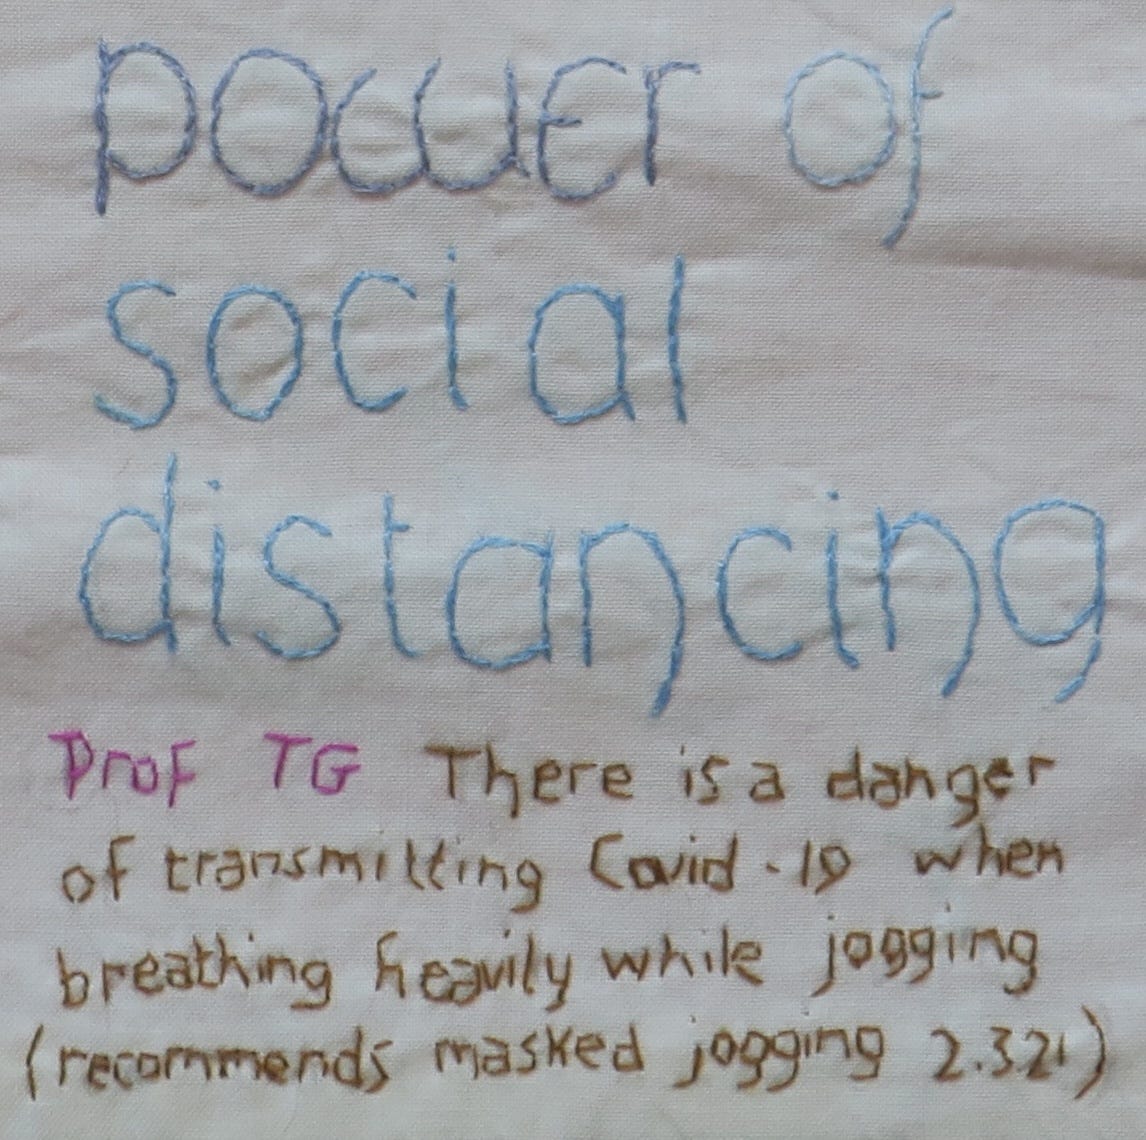 power of
social
distancing
Prof TG There is a danger
of transmitting Covid-19 when
breathing heavily while jogging
(recommends masked jogging 2.3.21)